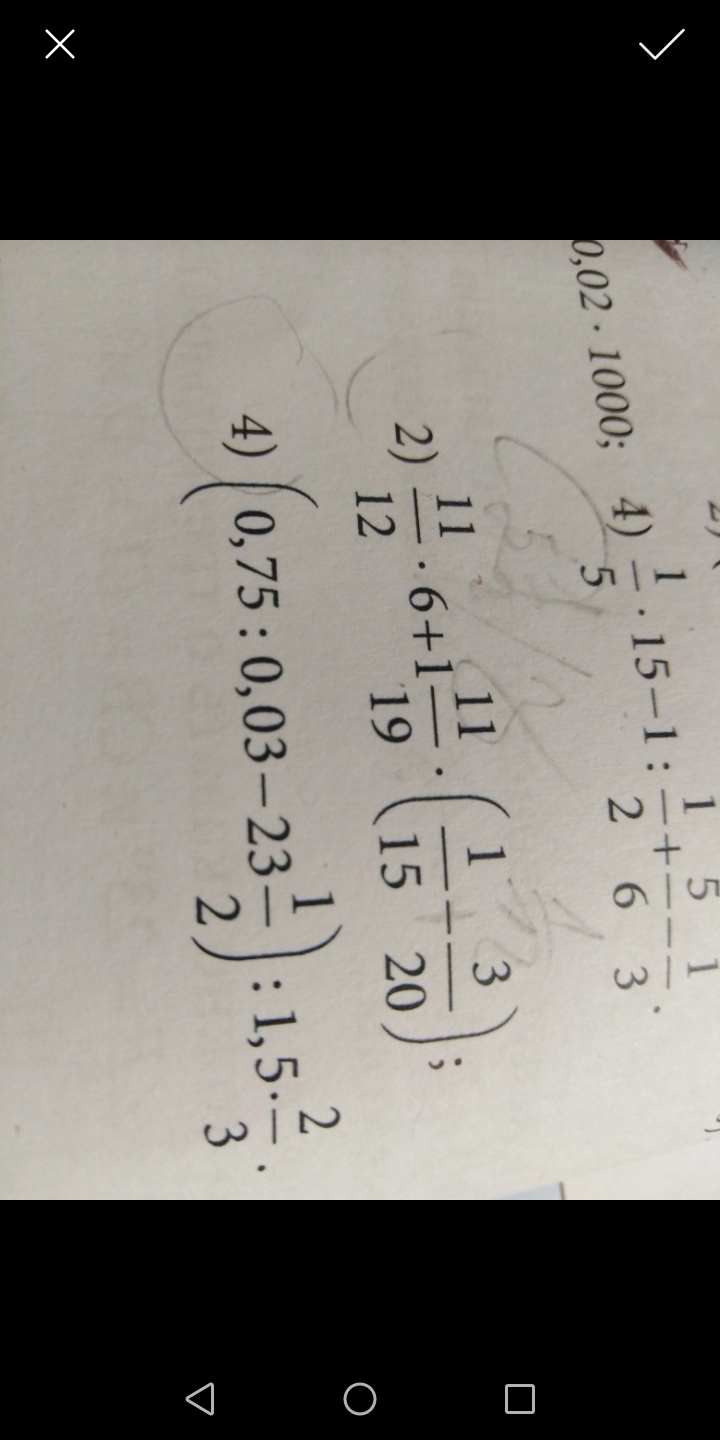 2) (
0,02 · 1000; 4) 1/5 · 15 − 1 : 1/2 + 5/6 − 1/3.
2) 11/12 · 6 + 1 11/19 · (1/15 − 3/20);
4) (0,75 : 0,03 − 23 1/2) : 1,5 · 2/3.